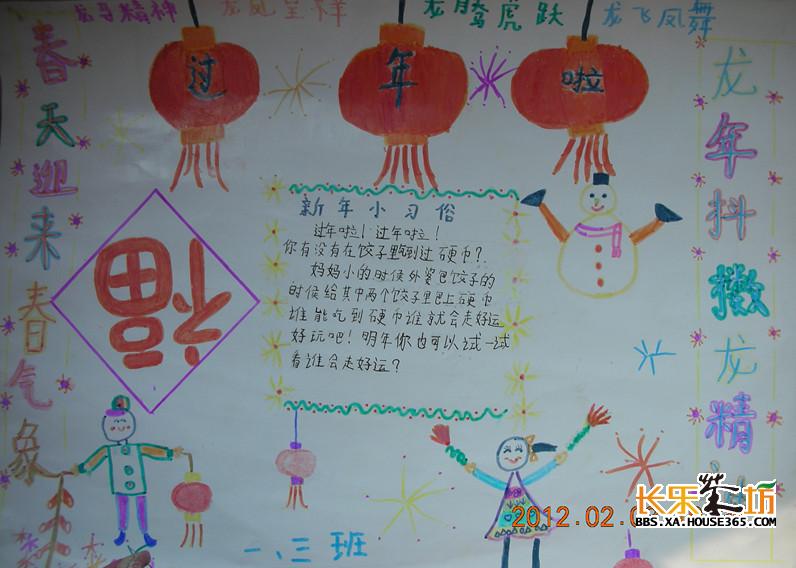 龙马精神
龙凤呈祥
龙腾虎跃
龙飞凤舞
过
年
啦
春天迎来春气象
龙年抖擞龙精神
福
新年小习俗
过年啦!过年啦!
你有没有在饺子里吃到过硬币?
妈妈小的时候外婆包饺子的
时候给其中两个饺子里包上硬币
谁能吃到硬币谁就会走好运
好玩吧!明年你也可以试一试
看谁会走好运?
一、三班
2012.02.0
长乐茶坊
BBS.XA.HOUSE365.COM